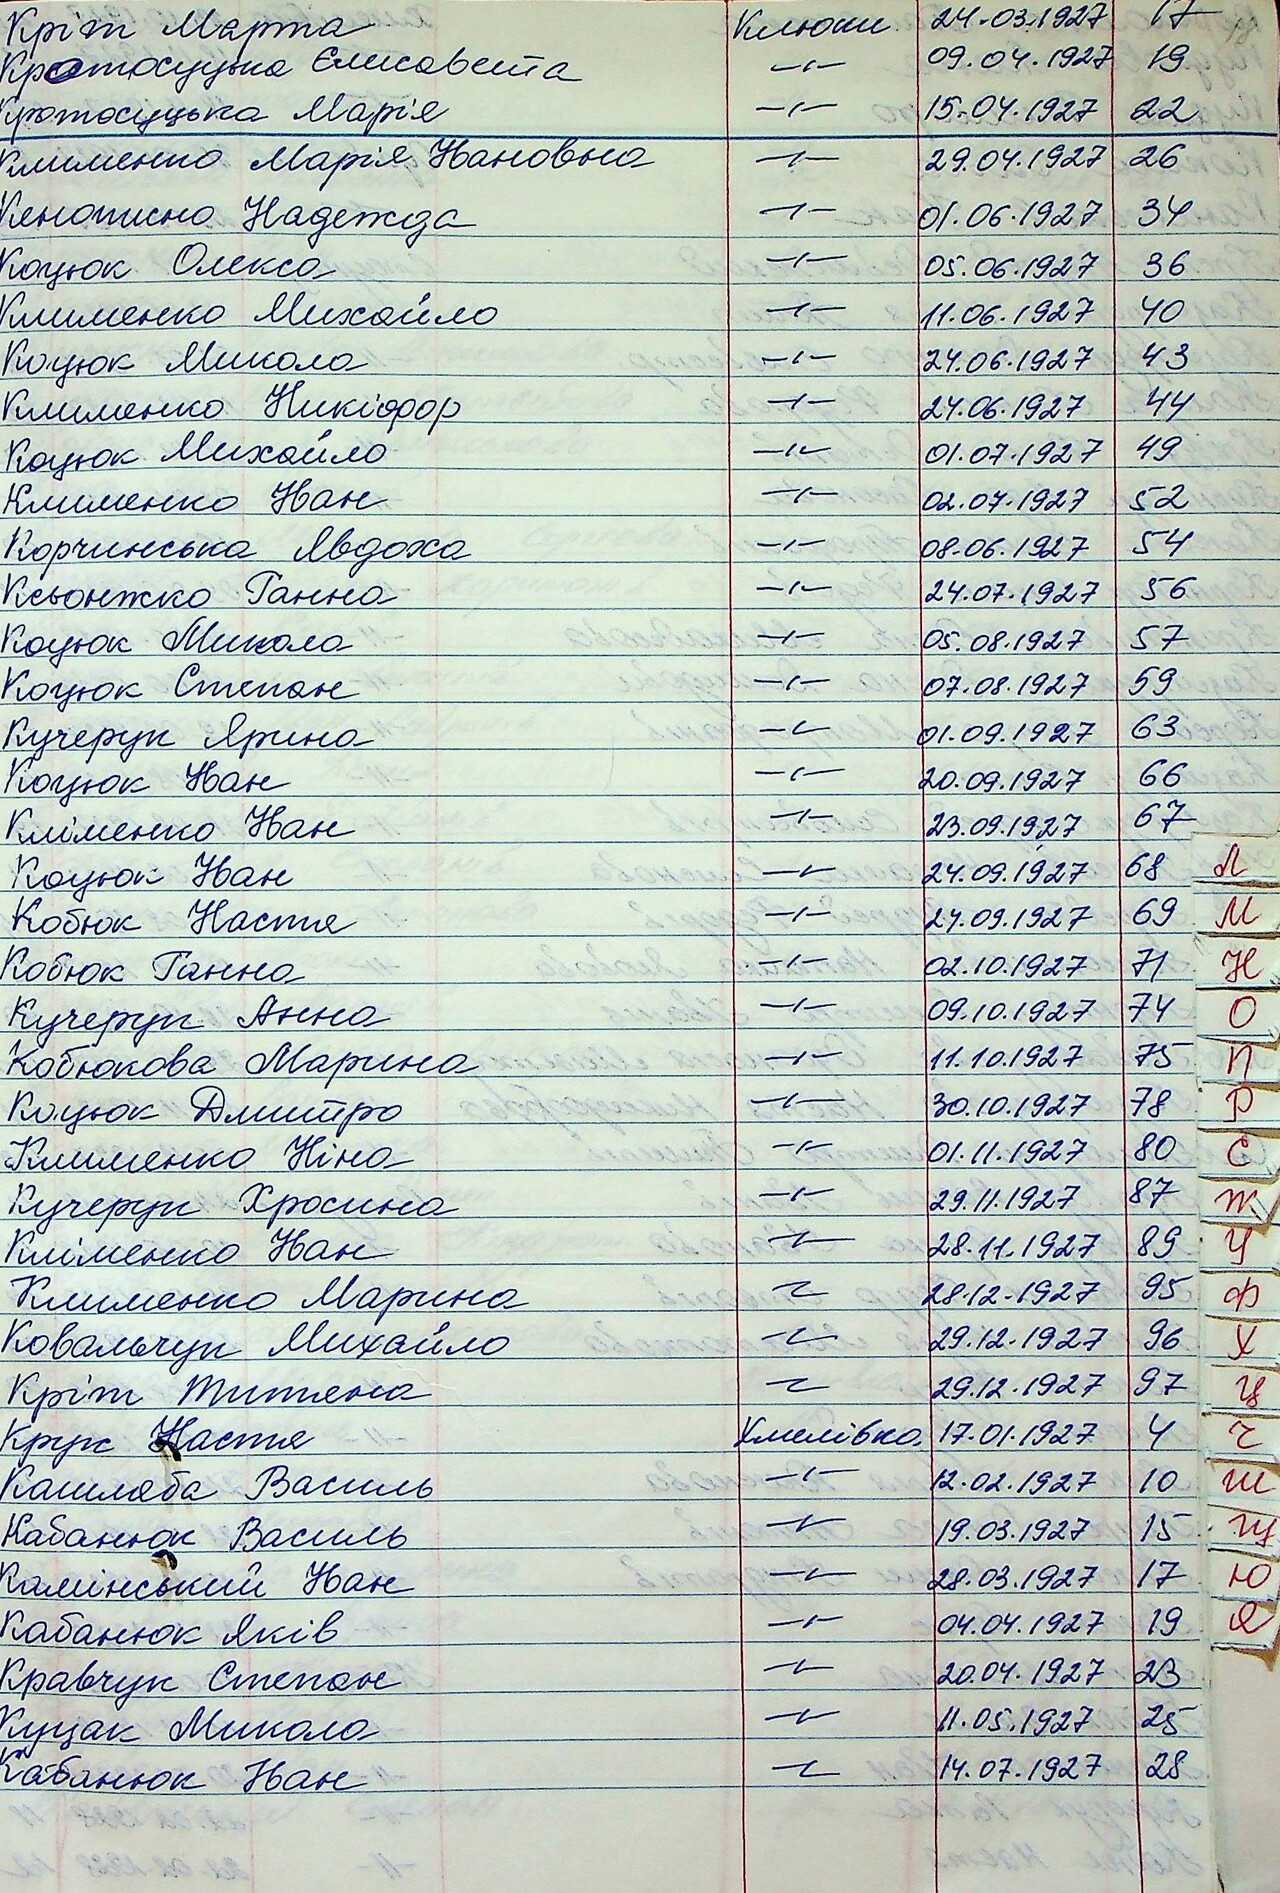 Кріт Марта Клюки 24.03.1927 17
Кротосуцька Єлисавета -//- 09.04.1927 19
Кротосуцька Марія -//- 15.04.1927 22
Клименко Марія Ивановна -//- 29.04.1927 26
Надежда -//- 01.06.1927 34
Коцюк Олекса -//- 05.06.1927 36
Клименко Михайло -//- 11.06.1927 40
Коцюк Микола -//- 24.06.1927 43
Клименко Никіфор -//- 24.06.1927 44
Коцюк Михайло -//- 01.07.1927 49
Клименко Иван -//- 02.07.1927 52
Корчинська Явдоха -//- 08.06.1927 54
Ксьонжко Ганна -//- 24.07.1927 56
Коцюк Микола -//- 05.08.1927 57
Коцюк Степан -//- 07.08.1927 59
Кучерук Ярина -//- 01.09.1927 63
Коцюк Иван -//- 20.09.1927 66
Кліменко Иван -//- 23.09.1927 67
Коцюк Иван -//- 24.09.1927 68 Л
Кобюк Настя -//- 24.09.1927 69 М
Кобюк Ганна -//- 02.10.1927 71 Н
Кучерук Анна -//- 09.10.1927 74 О
Кобюкова Марина -//- 11.10.1927 75 П
Коцюк Дмитро -//- 30.10.1927 78 Р
Клименко Ніна -//- 01.11.1927 80 С
Кучерук Хросина -//- 29.11.1927 87 Т
Кліменко Иван -//- 28.11.1927 89 У
Клименко Марина -//- 28.12.1927 95 Ф
Ковальчук Михайло -//- 29.12.1927 96 Х
Кріт Титяна -//- 29.12.1927 97 Ц
Крук Настя Хмелівка. 17.01.1927 4 Ч
Кашляба Василь -//- 12.02.1927 10 Ш
Кабанюк Василь -//- 19.03.1927 15 Щ
Камінський Иван -//- 28.03.1927 17 Ю
Кабанюк Яків -//- 04.04.1927 19 Я
Кравчук Степан -//- 20.04.1927 23
Куцак Микола -//- 11.05.1927 25
Кабанюк Иван -//- 14.07.1927 28